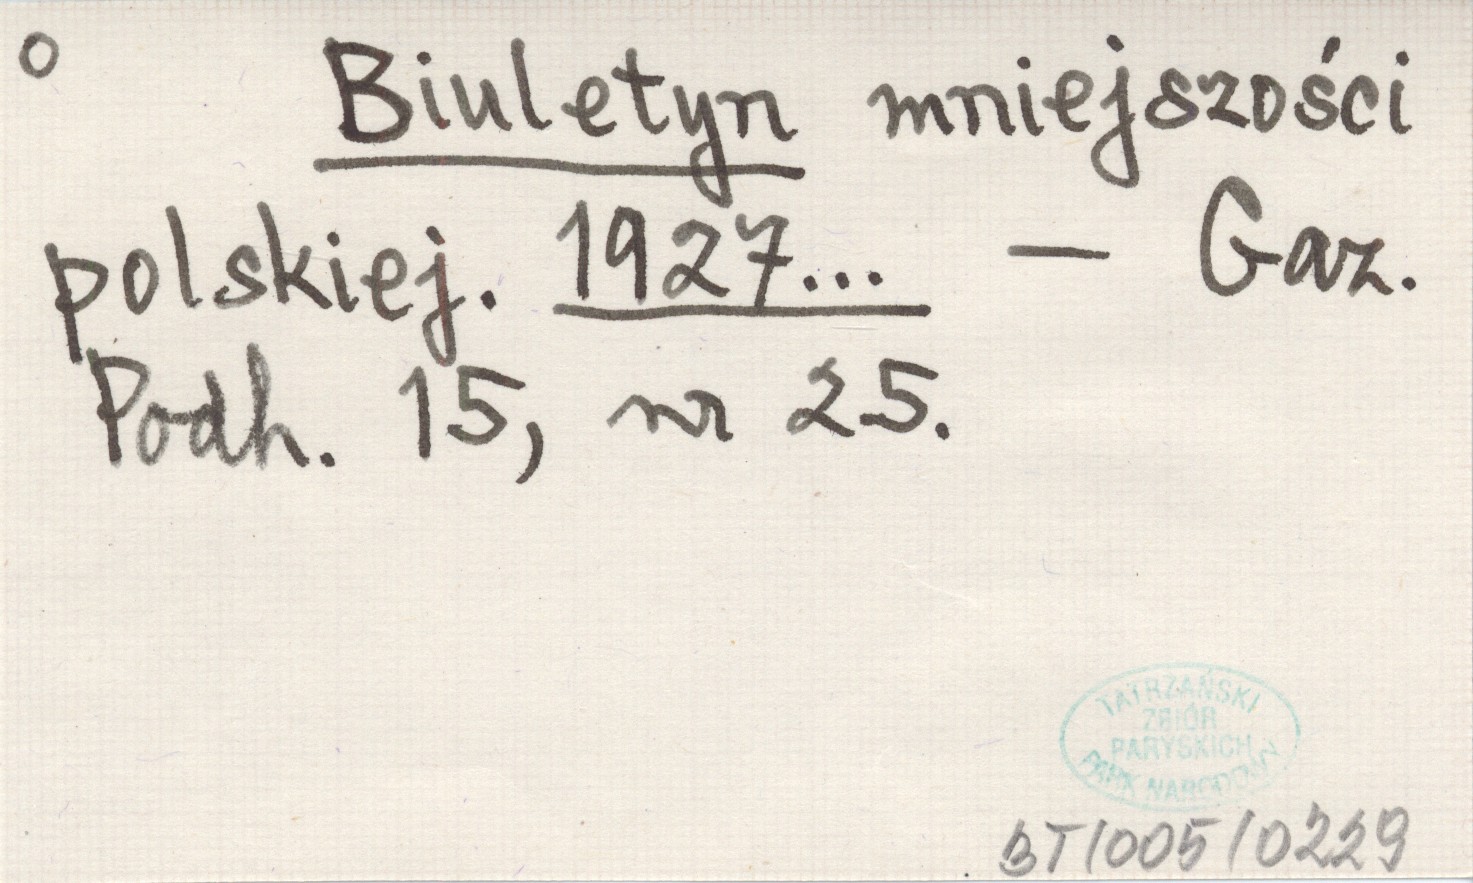 o Biuletyn mniejszości
polskiej. 1927... — Gaz.
Podh. 15, nr 25.
TATRZAŃSKI
ZBIÓR
PARYSKICH
PARK NARODOWY
BT/005/0229